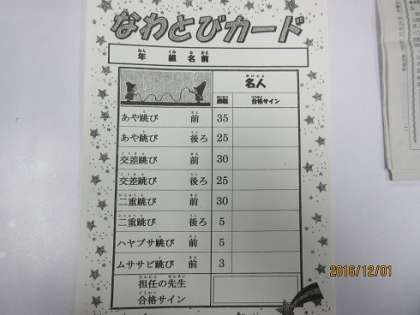 なわとびカード
年 組 名前
名人
回数 合格サイン
あや跳び 前 35
あや跳び 後ろ 25
交差跳び 前 30
交差跳び 後ろ 25
二重跳び 前 30
二重跳び 後ろ 5
ハヤブサ跳び 前 5
ムササビ跳び 前 3
担任の先生
合格サイン
2016/12/01